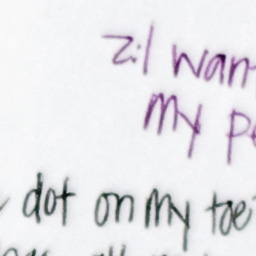 z:I wan
my p
dot on my toe